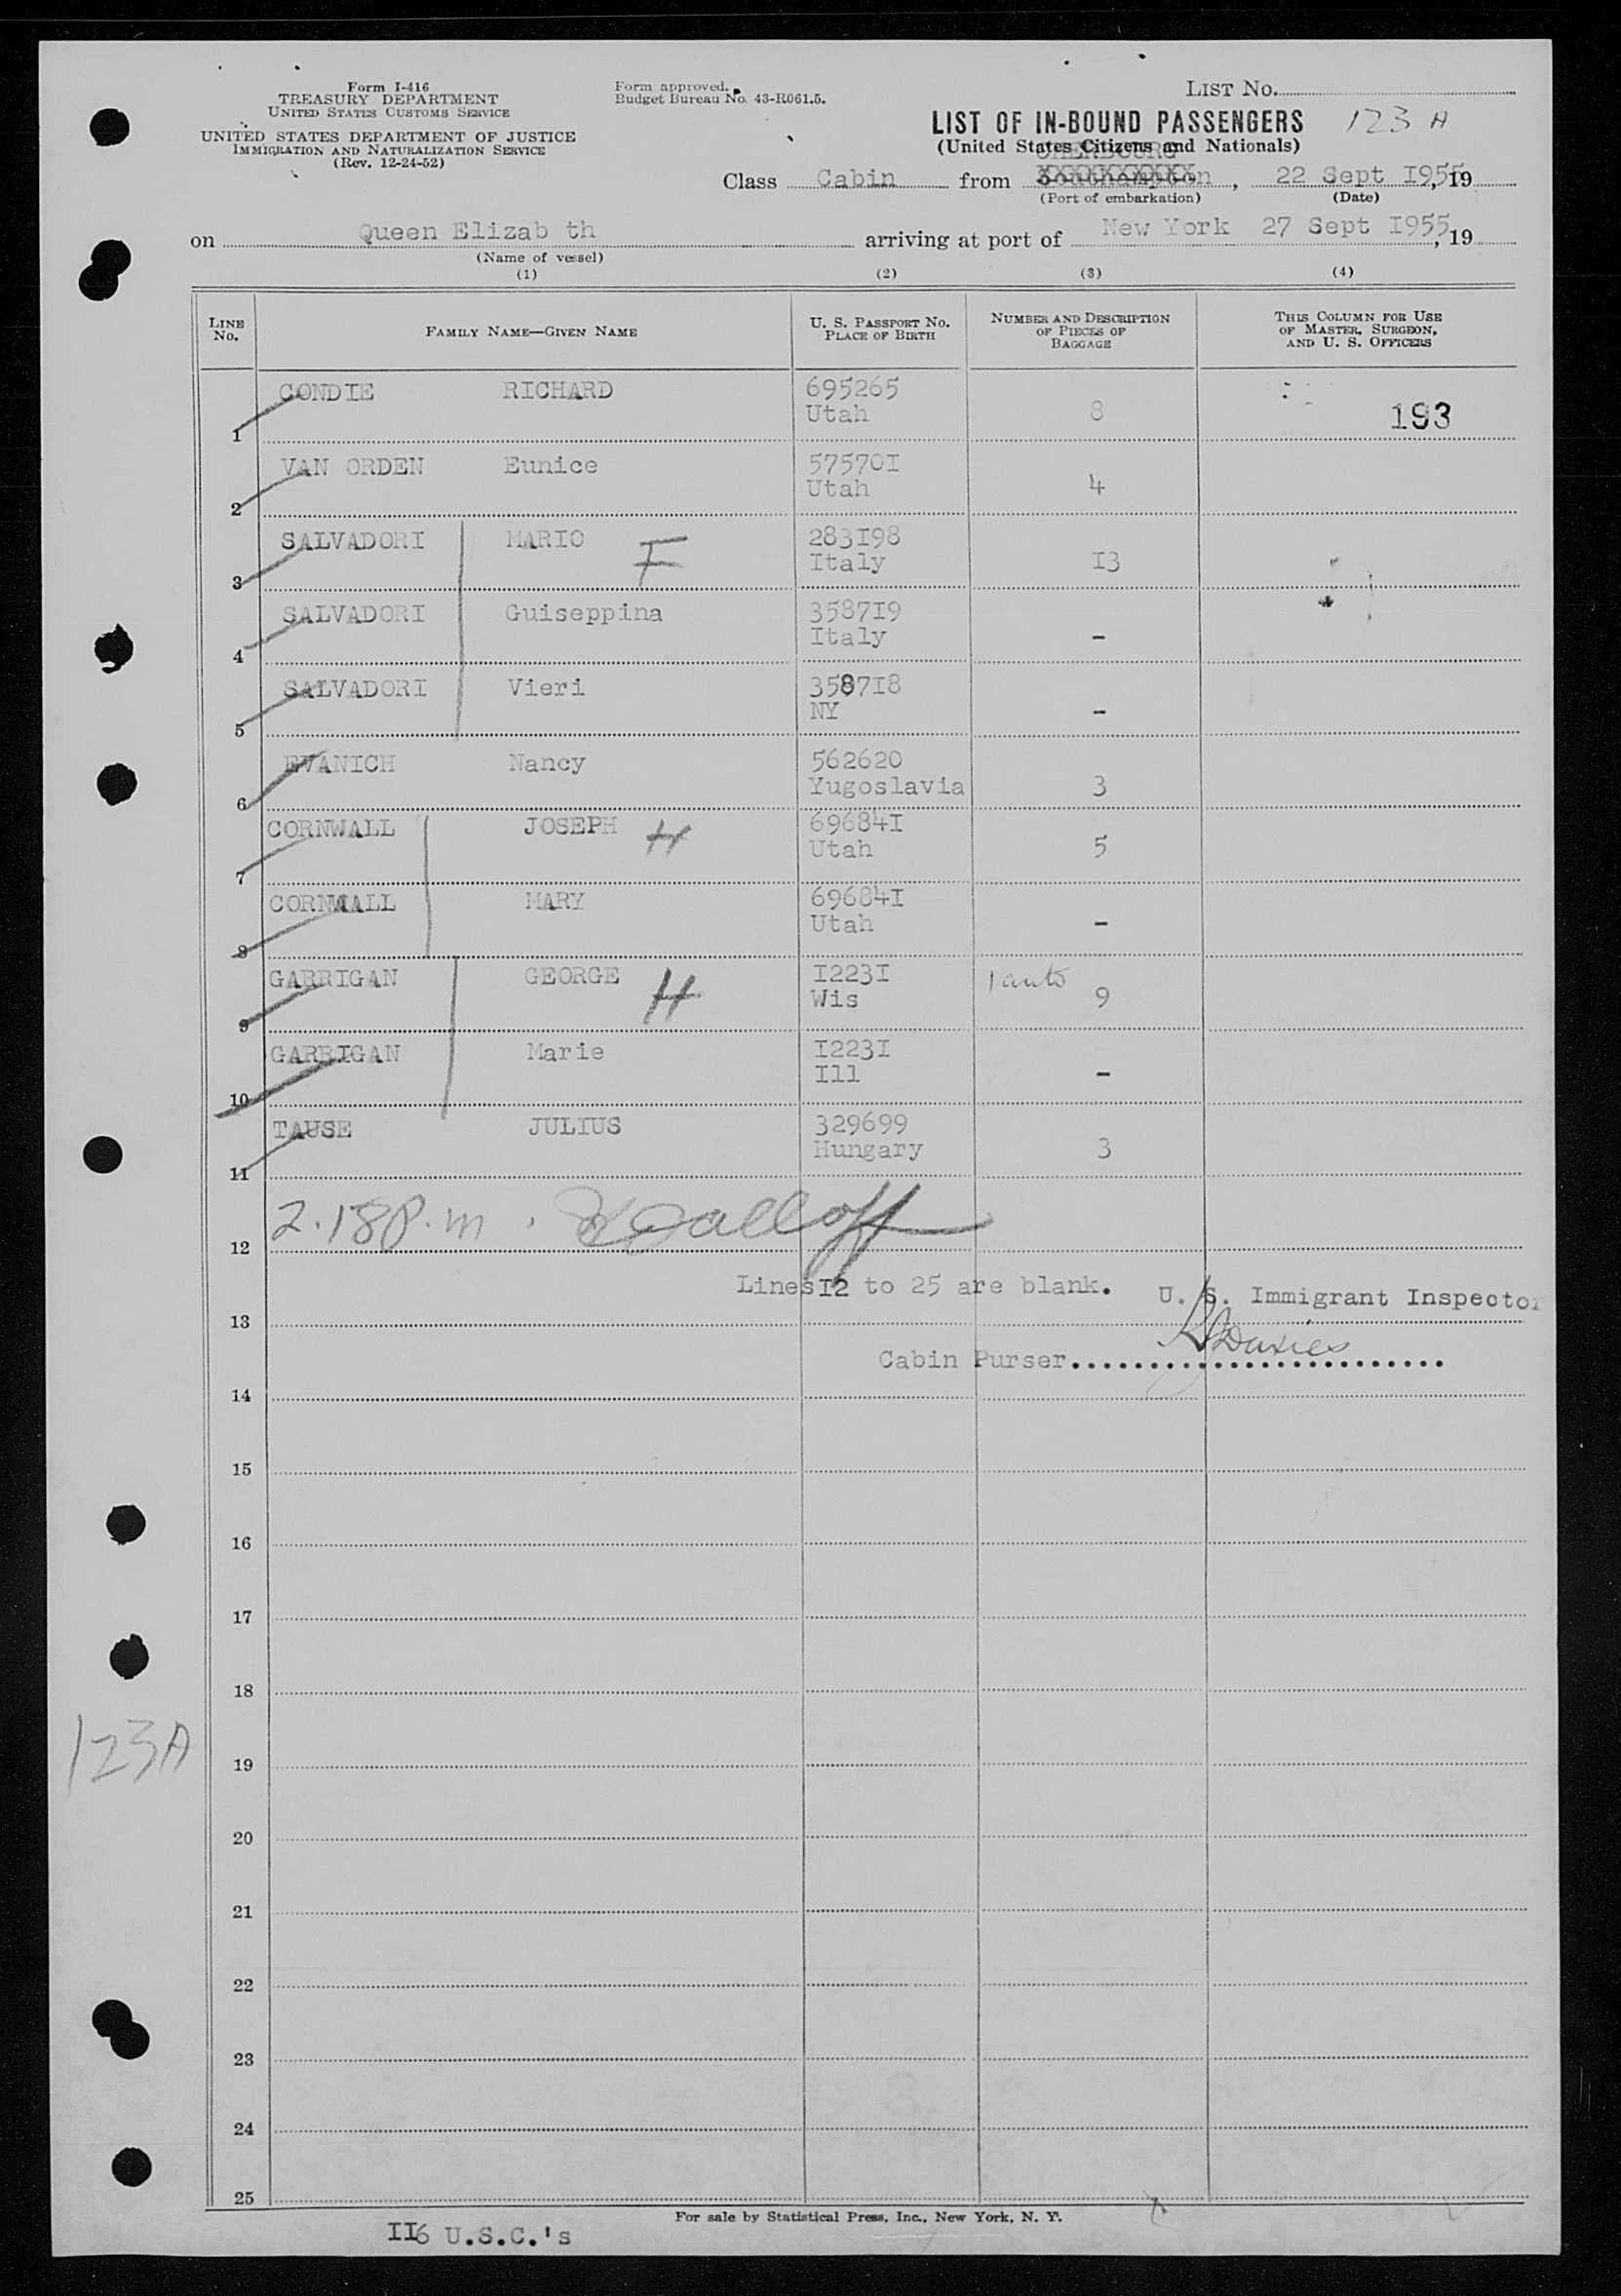 Form I-416
TREASURY DEPARTMENT
UNITED STATES CUSTOMS SERVICE
UNITED STATES DEPARTMENT OF JUSTICE
IMMIGRATION AND NATURALIZATION SERVICE
(Rev. 12-24-52)
Form approved.
Budget Bureau No. 43-R061.5.
LIST NO.
LIST OF IN-BOUND PASSENGERS 123 A
(United States Citizens and Nationals)
CHERBOURG
Class Cabin from Southampton, 22 Sept I955, 19
(Port of embarkation) (Date)
on Queen Elizab th arriving at port of New York 27 Sept I955, 19
(Name of vessel)
(1) (2) (3) (4)
LINE No. FAMILY NAME—GIVEN NAME U. S. PASSPORT NO. PLACE OF BIRTH NUMBER AND DESCRIPTION OF PIECES OF BAGGAGE THIS COLUMN FOR USE OF MASTER, SURGEON, AND U. S. OFFICERS
1 CONDIE RICHARD 695265 Utah 8 193
2 VAN ORDEN Eunice 57570I Utah 4
3 SALVADORI MARIO F 283I98 Italy I3
4 SALVADORI Guiseppina 3587I9 Italy -
5 SALVADORI Vieri 3587I8 NY -
6 EVANICH Nancy 562620 Yugoslavia 3
7 CORNWALL JOSEPH H 69684I Utah 5
8 CORNWALL MARY 69684I Utah -
9 GARRIGAN GEORGE H I223I Wis 1 auto 9
10 GARRIGAN Marie I223I Ill -
11 TAUSE JULIUS 329699 Hungary 3
12 2.18 P.m.
Lines I2 to 25 are blank. U. S. Immigrant Inspector
13
Cabin Purser Davies
14
15
16
17
18
123A
19
20
21
22
23
24
25
For sale by Statistical Press, Inc., New York, N. Y.
II6 U.S.C.'s